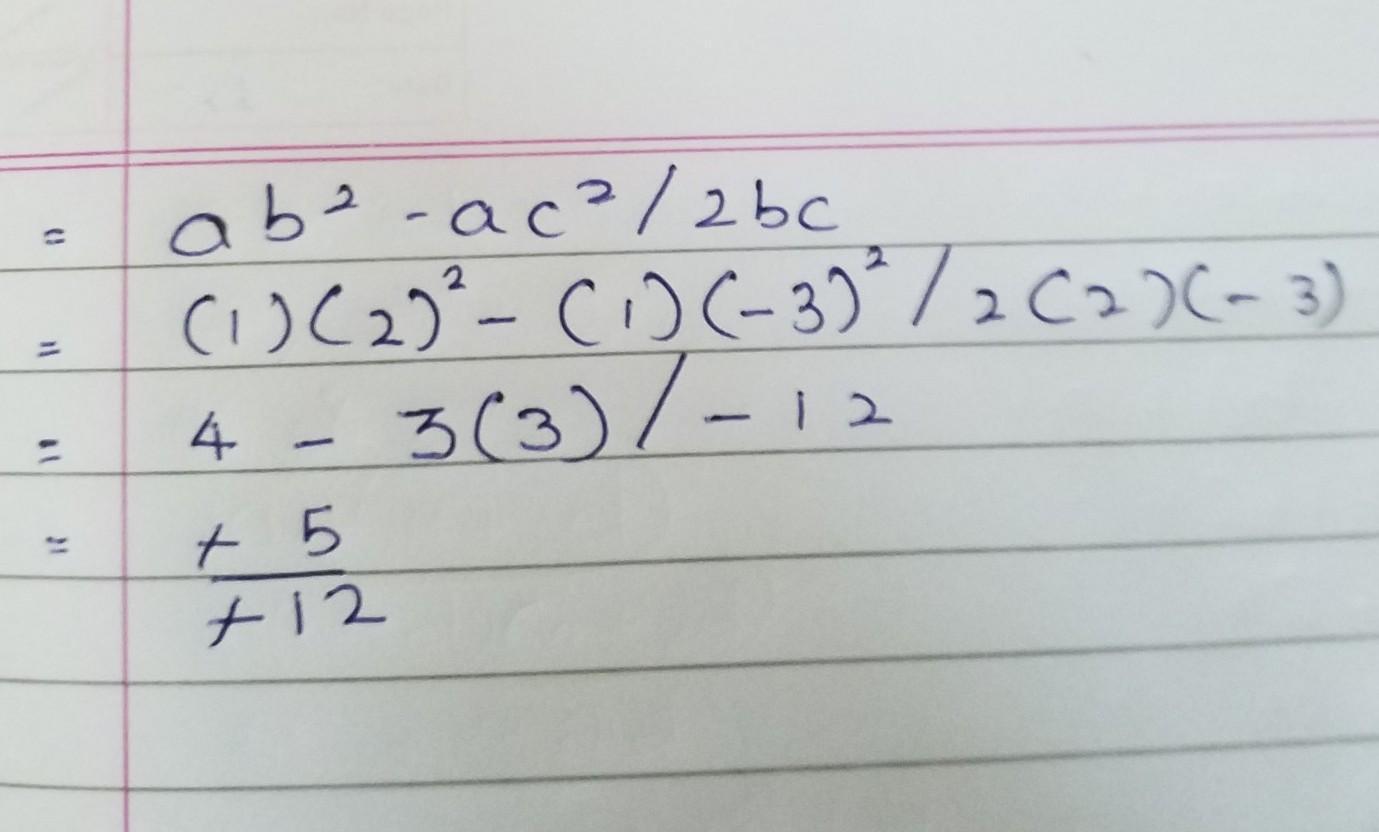 = ab² - ac² / 2bc
= (1)(2)² - (1)(-3)² / 2(2)(-3)
= 4 - 3(3) / -12
= + 5
+12